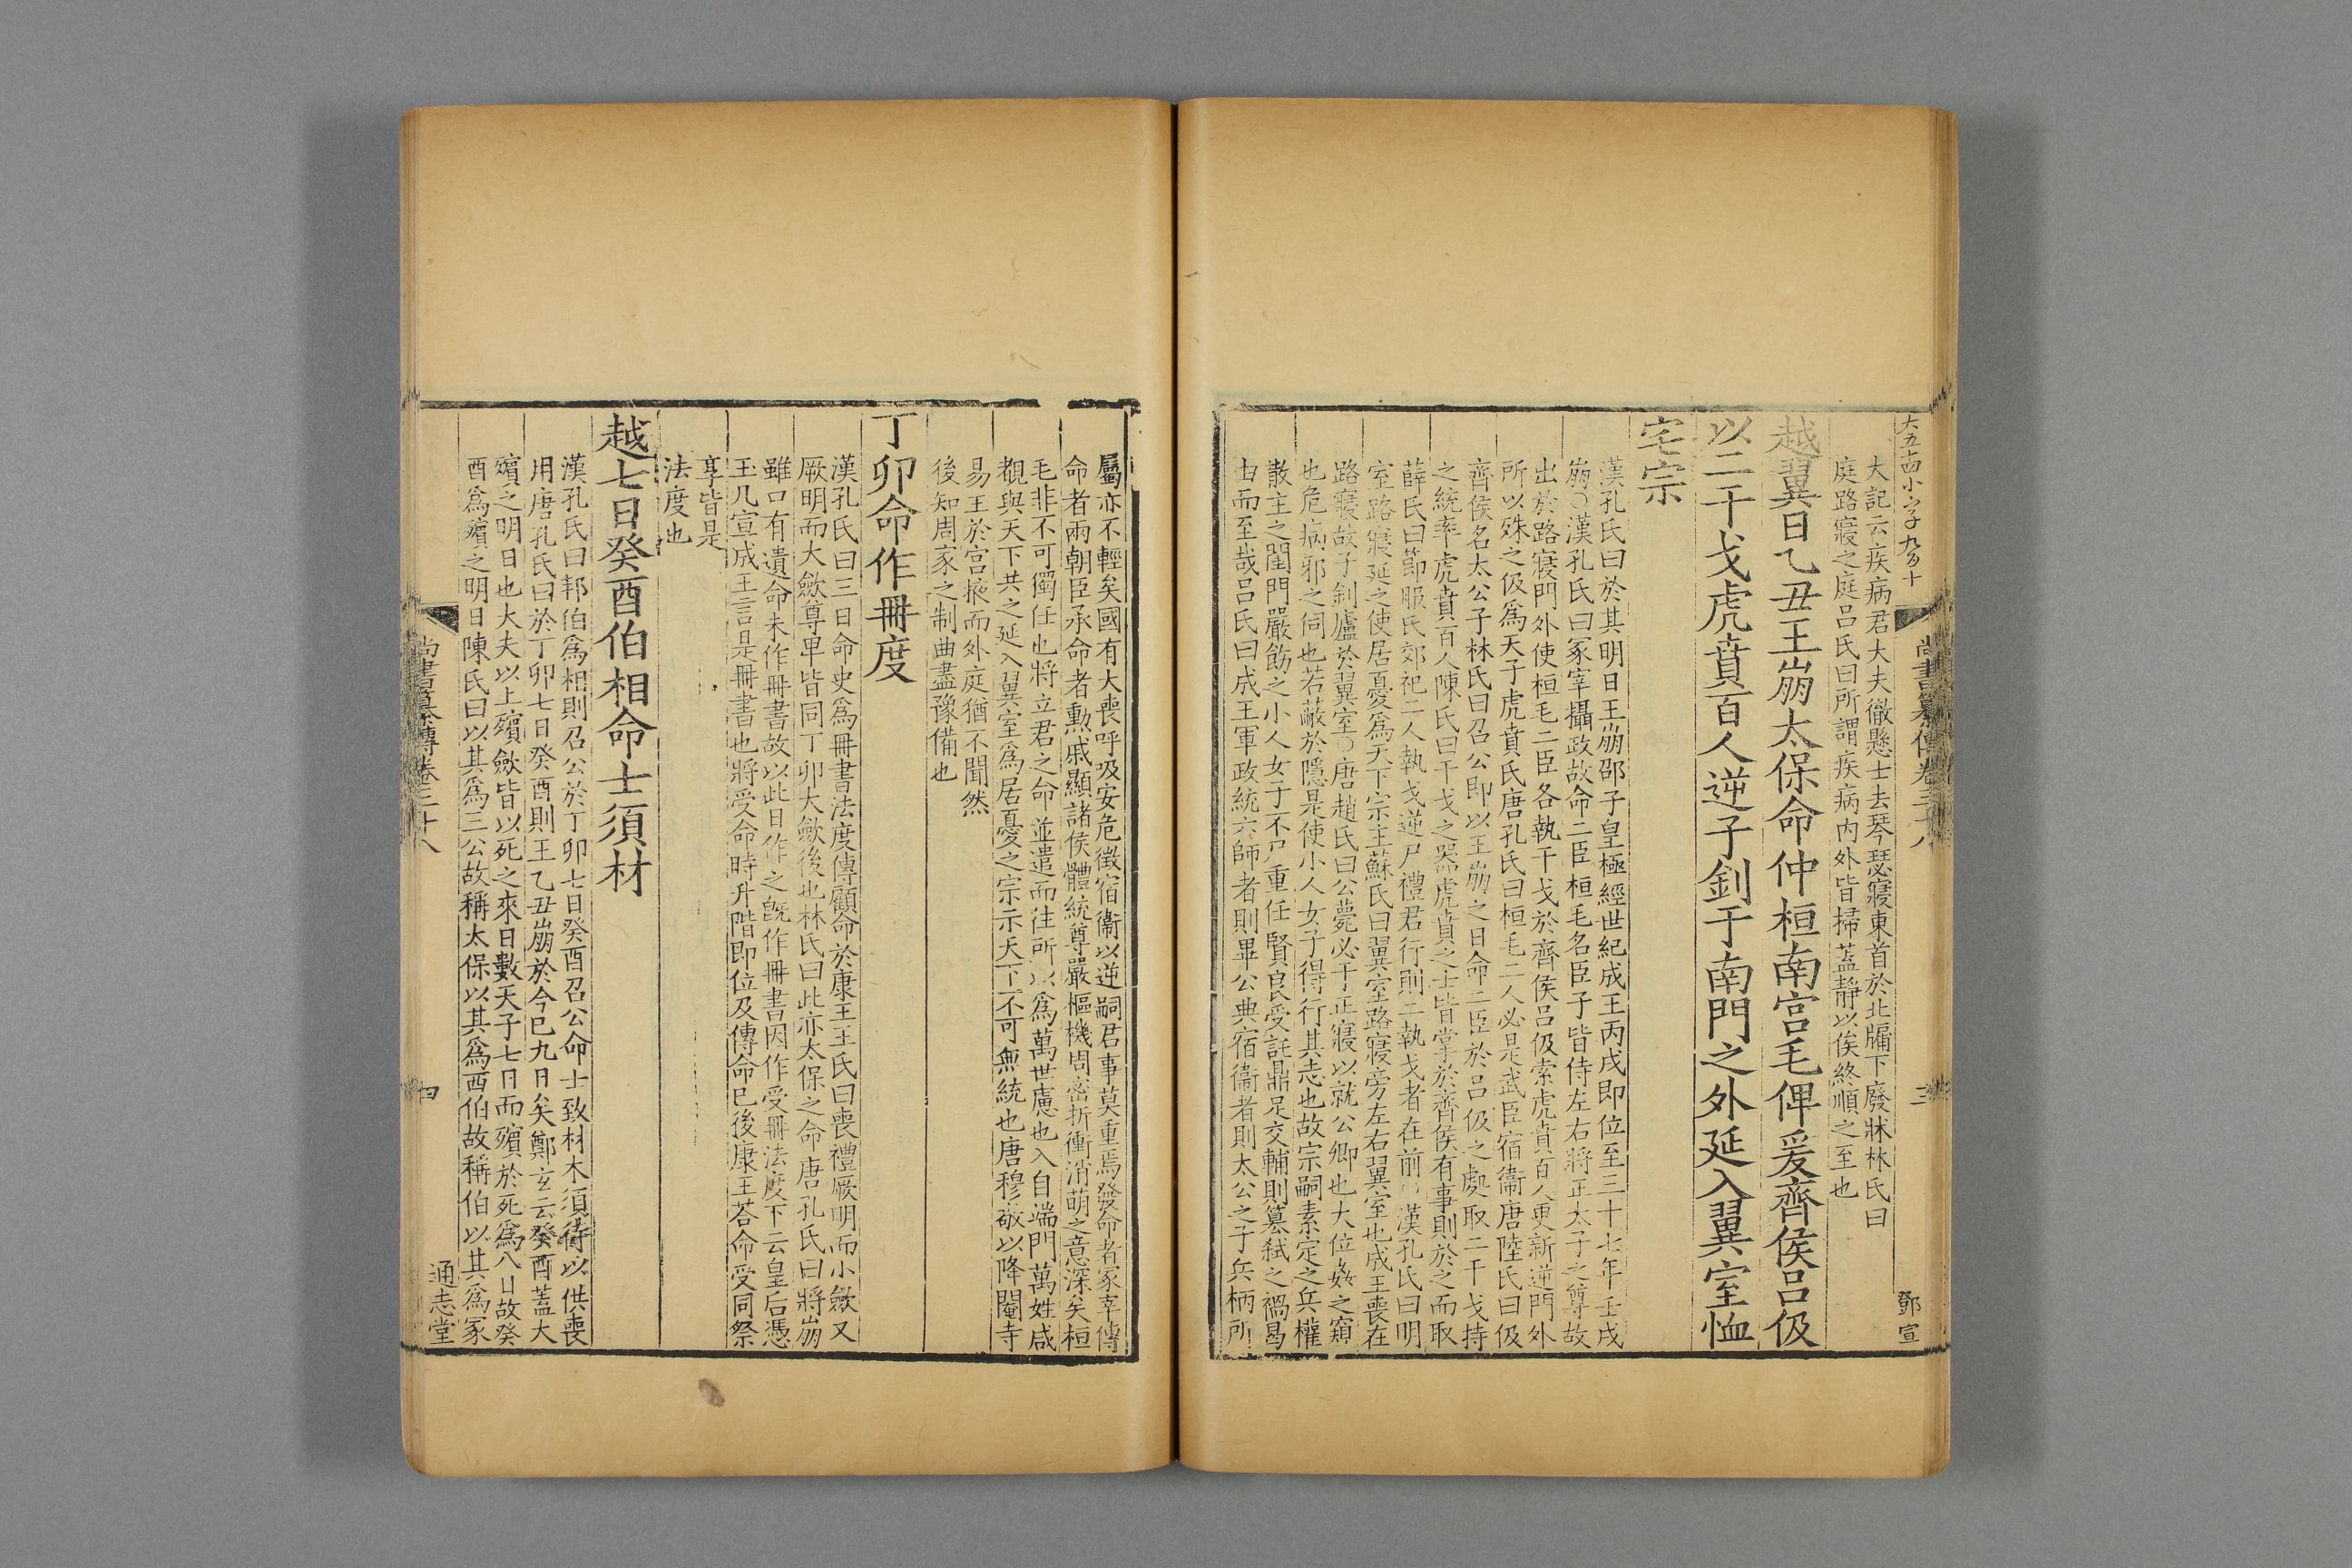 大五十四小字九百十
尚書纂傳卷三十八
三
鄧宣
大記云疾病君大夫徹懸士去琴瑟寢東首於北牖下廢牀林氏曰
庭路寢之庭呂氏曰所謂疾病內外皆掃蓋靜以俟終順之至也
越翼日乙丑王崩太保命仲桓南宮毛俾爰齊侯呂伋
以二干戈虎賁百人逆子釗于南門之外延入翼室恤
宅宗
漢孔氏曰於其明日王崩邵子皇極經世紀成王丙戌即位至三十七年壬戌
崩○漢孔氏曰冢宰攝政故命二臣桓毛名臣子皆侍左右將正太子之尊故
出於路寢門外使桓毛二臣各執干戈於齊侯呂伋索虎賁百人更新逆門外
所以殊之伋爲天子虎賁氏唐孔氏曰桓毛二人必是武臣宿衞唐陸氏曰伋
齊侯名太公子林氏曰召公即以王崩之日命二臣於呂伋之處取二干戈持
之統率虎賁百人陳氏曰干戈之器虎賁之士皆掌於齊侯有事則於之而取
薛氏曰節服氏郊祀二人執戈逆尸禮君行則二執戈者在前○漢孔氏曰明
室路寢延之使居憂爲天下宗主蘇氏曰翼室路寢旁左右翼室也成王喪在
路寢故子釗廬於翼室○唐趙氏曰公薨必于正寢以就公卿也大位姦之窺
也危病邪之伺也若蔽於隱是使小人女子得行其志也故宗嗣素定之兵權
散主之閨門嚴飭之小人女子不尸重任賢良受託鼎足交輔則簒弑之禍曷
由而至哉呂氏曰成王軍政統六師者則畢公典宿衞者則太公之子兵柄所
屬亦不輕矣國有大喪呼吸安危徵宿衞以逆嗣君事莫重焉發命者冢宰傳
命者兩朝臣承命者勳戚顯諸侯體統尊嚴樞機周密折衝消萌之意深矣桓
毛非不可獨任也將立君之命並遣而往所以爲萬世慮也入自端門萬姓咸
覩與天下共之延入翼室爲居憂之宗示天下不可無統也唐穆敬以降閹寺
易王於宮掖而外庭猶不聞然
後知周家之制曲盡豫備也
丁卯命作冊度
漢孔氏曰三日命史爲冊書法度傳顧命於康王王氏曰喪禮厥明而小斂又
厥明而大斂尊卑皆同丁卯大斂後也林氏曰此亦太保之命唐孔氏曰將崩
雖口有遺命未作冊書故以此日作之旣作冊書因作受冊法度下云皇后憑
玉几宣成王言是冊書也將受命時升階即位及傳命已後康王荅命受同祭
享皆是
法度也
越七日癸酉伯相命士須材
漢孔氏曰邦伯爲相則召公於丁卯七日癸酉召公命士致材木須待以供喪
用唐孔氏曰於丁卯七日癸酉則王乙丑崩於今已九日矣鄭玄云癸酉蓋大
殯之明日也大夫以上殯斂皆以死之來日數天子七日而殯於死爲八日故癸
酉爲殯之明日陳氏曰以其爲三公故稱太保以其爲西伯故稱伯以其爲冢
尚書纂傳卷三十八
四
通志堂